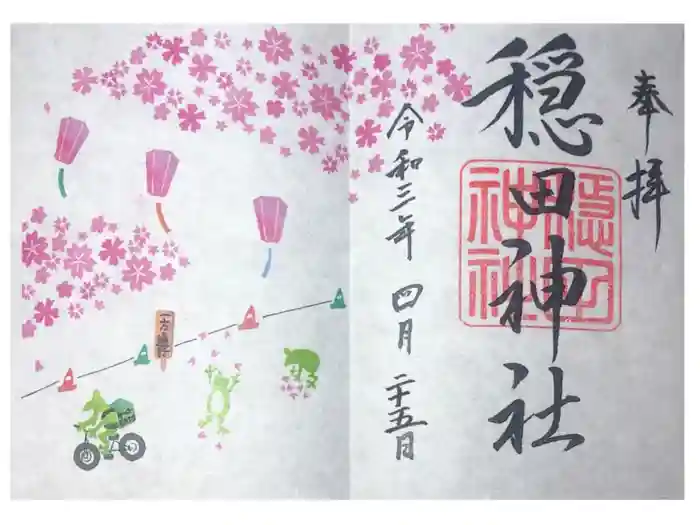 奉拝
穏田神社
穏田
神社
令和三年 四月 二十五日
一方通行